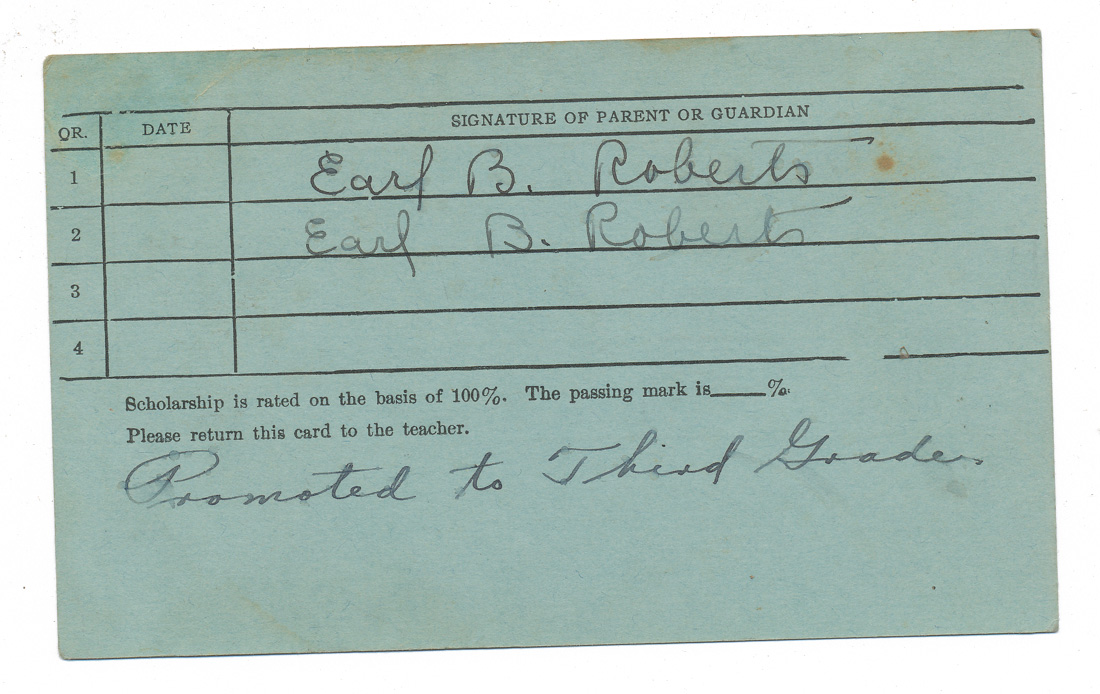 QR. DATE SIGNATURE OF PARENT OR GUARDIAN
1 Earl B. Roberts
2 Earl B. Roberts
3
4
Scholarship is rated on the basis of 100%. The passing mark is____%.
Please return this card to the teacher.
Promoted to Third Grade.